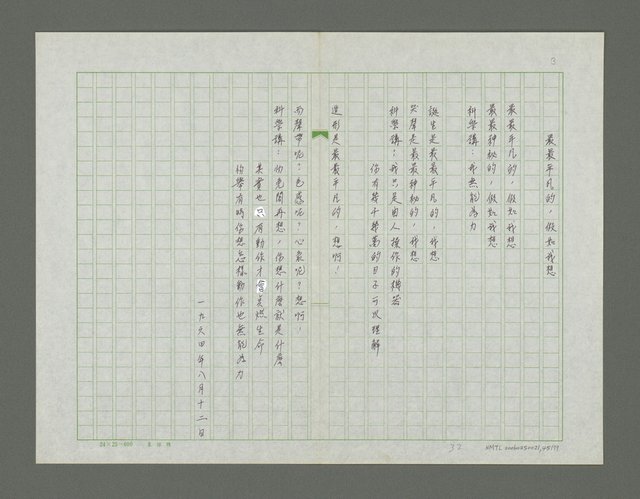 3
最最平凡的，假如我想
最最平凡的，假如我想
最最神秘的，假如我想
科學講：我無能為力
誕生是最最平凡的，我想
哭聲是最最神秘的，我想
科學講：我只是由人操作的機器
你有幾千幾萬的日子可以理解
造形是最最平凡的，想啊！
而聲帶呢？色感呢？心象呢？想啊！
科學講：仂免閒再想，你想什麼就是什麼
其實也只有動作才會美燃生命
仂學有時你想怎樣動作也無能為力
一九六四年八月十二日
24×25=600
32
NMTL